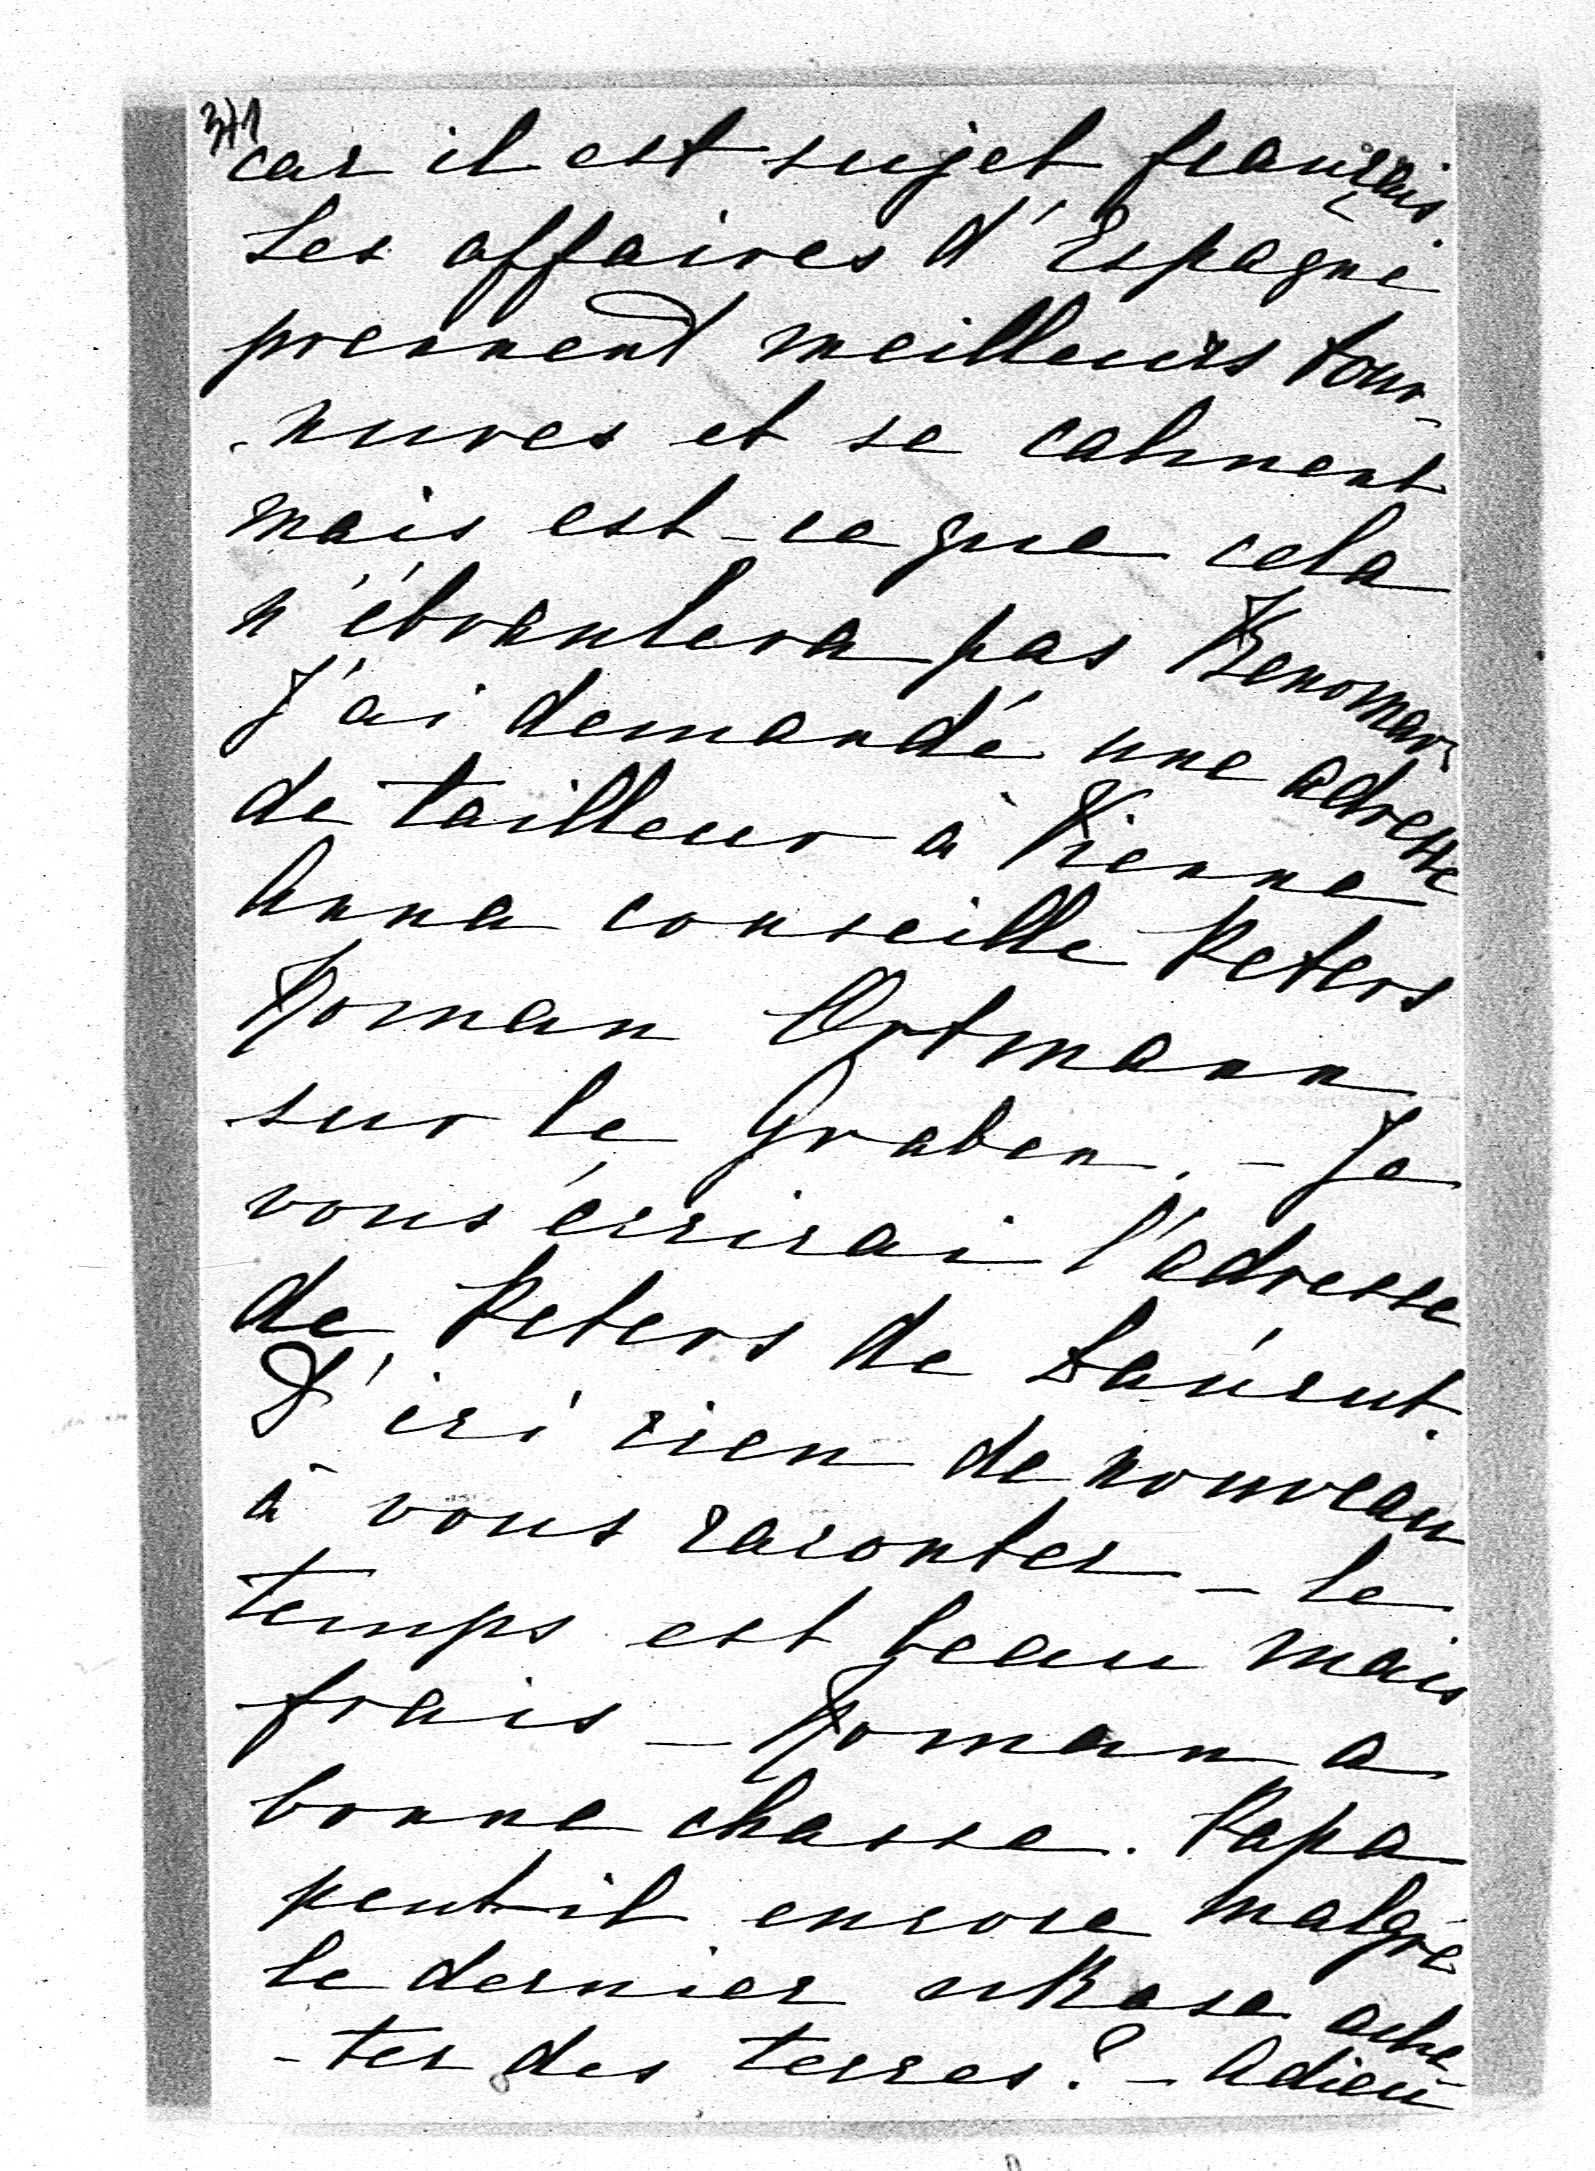 371
car il est sujet français.
Les affaires d'Espagne
prennent meilleurs tour-
-nures et se calment
mais est-ce que cela
n'ébranlera pas Renomar
J'ai demandé une adresse
de tailleur à Vienne
Anna conseille Peters
Roman Ortmann
sur le Graben. - Je
vous écrirai l'adresse
de Peters de Łańcut.
D'ici rien de nouveau
à vous raconter - le
temps est beau mais
frais - Roman a
bonne chasse. Papa
peut-il encore malgré
le dernier ukase ache
-ter des terres? - Adieu